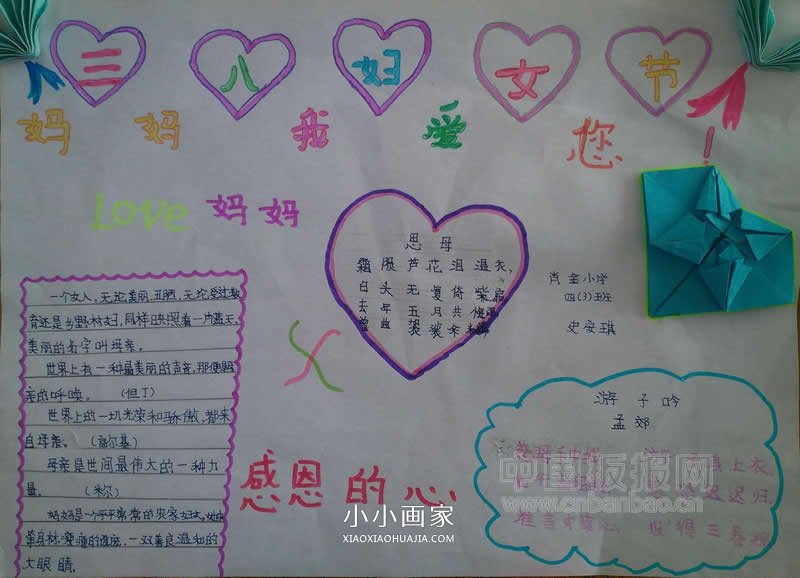 三八妇女节
妈妈我爱您!
Love 妈妈
思母
霜殒芦花泪湿衣,
白头无复倚柴扉
去年五月
曾典袈裟
肖金小学
四(3)班
史安琪
一个女人,无论美丽、丑陋,无论受过教
育还是乡野村妇,同样映照着一片蓝天,
美丽的名字叫母亲。
世界上有一种最美丽的声音,那便是母
亲的呼唤。 (但丁)
世界上的一切光荣和骄傲,都来
自母亲。 (高尔基)
母亲是世间最伟大的一种力
量。 (米尔)
妈妈是一个平平常常的农家妇女,她有
一双善良温和的
大眼睛。
感恩的心
游子吟
孟郊
身上衣
迟迟归
报得三春
中国板报网
www.cnbanbao.cn
小小画家
XIAOXIAOHUAJIA.COM